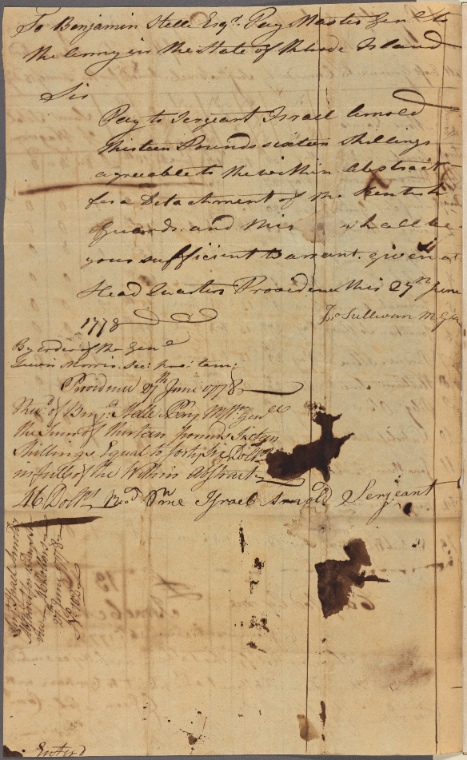 To Benjamin Stelle Esqr. Pay Master Genl to
the Army in the State of Rhode Island
Sir
Pay to Serjeant Israel Arnold
thirteen Pounds sixteen Shillings
agreeable to the within Abstract
for a Detachment of the
Guards. and this shall be
your sufficient Warrant. given at
Head Quarters Providence this 27th June
1778
Jo Sullivan M Gen
By order of the Genl
Lewis Morris Sec: pro: tem:
Providence 27th June 1778
Recd of Benja Stelle Pay Mastr Genl
the Sum of thirteen pounds Sixteen
shillings Equal to forty Six Dollrs
in full of the Within Abstract
46 Dollrs Recd me Israel Arnold Serjeant
Israel Arnold
27 June 1778
Entred